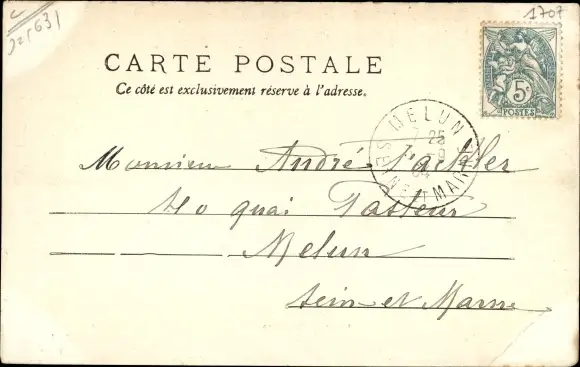 1707
CARTE POSTALE
Ce côté est exclusivement réservé à l'adresse.
5c
POSTES
MELUN
25
9
04
SEINE ET MARNE
Monsieur André
40 quai Pasteur
Melun
Seine et Marne